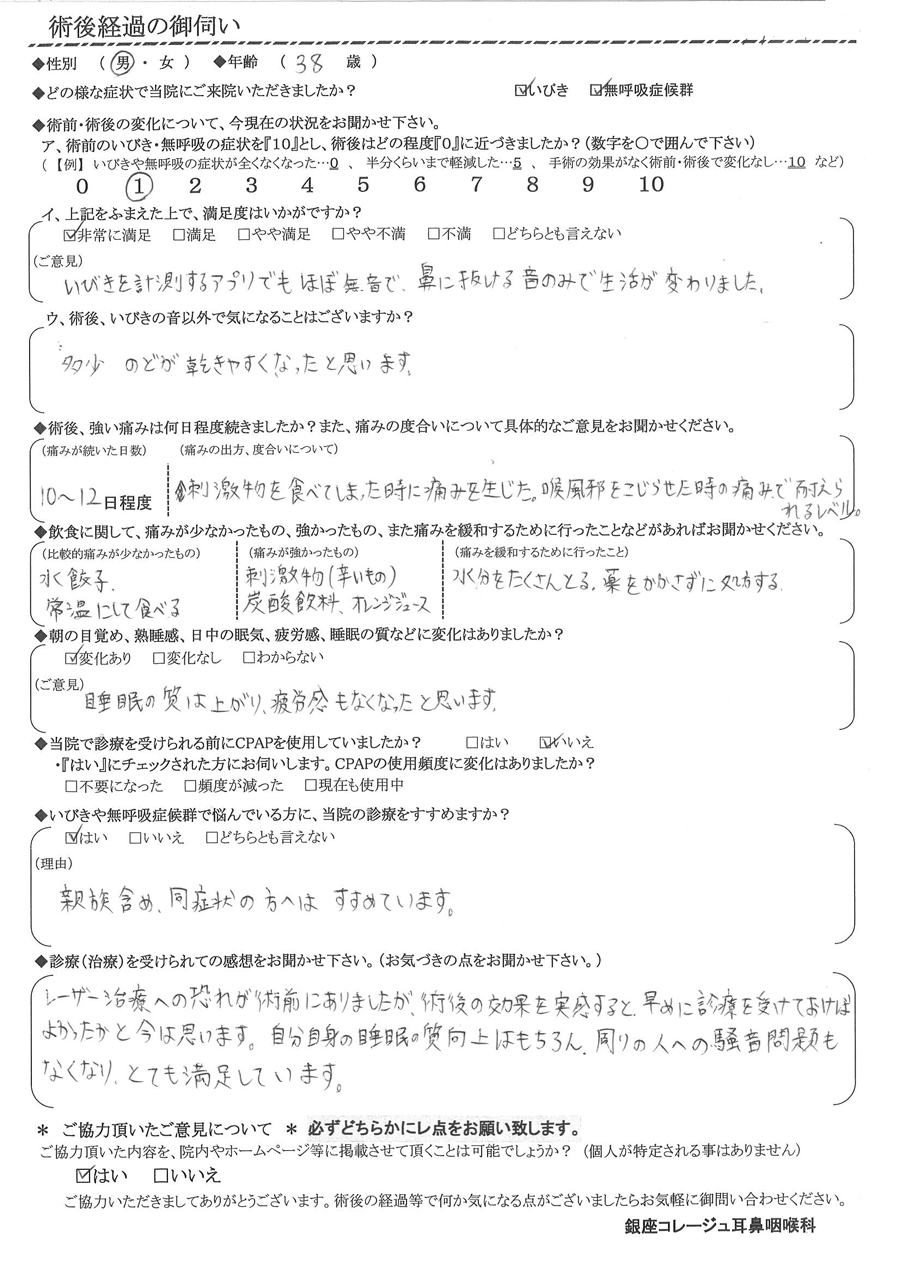 術後経過の御伺い
◆性別 （ 男 ・ 女 ） ◆年齢 （ 38 歳 ）
◆どの様な症状で当院にご来院いただきましたか？ ☑いびき ☑無呼吸症候群
◆術前・術後の変化について、今現在の状況をお聞かせ下さい。
ア、術前のいびき・無呼吸の症状を『10』とし、術後はどの程度『0』に近づきましたか？（数字を○で囲んで下さい）
（【例】 いびきや無呼吸の症状が全くなくなった…0 、 半分くらいまで軽減した…5 、 手術の効果がなく術前・術後で変化なし…10 など）
0 1 2 3 4 5 6 7 8 9 10
イ、上記をふまえた上で、満足度はいかがですか？
☑非常に満足 □満足 □やや満足 □やや不満 □不満 □どちらとも言えない
（ご意見）
いびきを計測するアプリでも ほぼ無音で、鼻に抜ける音のみで生活が変わりました。
ウ、術後、いびきの音以外で気になることはございますか？
多少 のどが乾きやすくなったと思います。
◆術後、強い痛みは何日程度続きましたか？また、痛みの度合いについて具体的なご意見をお聞かせください。
（痛みが続いた日数） （痛みの出方、度合いについて）
10〜12日程度 刺激物を食べてしまった時に痛みを生じた。喉風邪をこじらせた時の痛みで耐えら
れるレベル。
◆飲食に関して、痛みが少なかったもの、強かったもの、また痛みを緩和するために行ったことなどがあればお聞かせください。
（比較的痛みが少なかったもの） （痛みが強かったもの） （痛みを緩和するために行ったこと）
水餃子. 刺激物（辛いもの） 水分をたくさんとる. 薬をかかさずに処方する.
常温にして食べる 炭酸飲料、オレンジジュース
◆朝の目覚め、熟睡感、日中の眠気、疲労感、睡眠の質などに変化はありましたか？
☑変化あり □変化なし □わからない
（ご意見）
睡眠の質は上がり、疲労感もなくなったと思います.
◆当院で診療を受けられる前にCPAPを使用していましたか？ □はい ☑いいえ
・『はい』にチェックされた方にお伺いします。CPAPの使用頻度に変化はありましたか？
□不要になった □頻度が減った □現在も使用中
◆いびきや無呼吸症候群で悩んでいる方に、当院の診療をすすめますか？
☑はい □いいえ □どちらとも言えない
（理由）
親族含め、同症状の方へは すすめています。
◆診療（治療）を受けられての感想をお聞かせ下さい。（お気づきの点をお聞かせ下さい。）
レーザー治療への恐れが術前にありましたが、術後の効果を実感すると、早めに診療を受けておけば
よかったかと今は思います。自分自身の睡眠の質向上はもちろん、周りの人への騒音問題も
なくなり、とても満足しています。
＊ ご協力頂いたご意見について ＊ 必ずどちらかにレ点をお願い致します。
ご協力頂いた内容を、院内やホームページ等に掲載させて頂くことは可能でしょうか？ （個人が特定される事はありません）
☑はい □いいえ
ご協力いただきましてありがとうございます。術後の経過等で何か気になる点がございましたらお気軽に御問い合わせください。
銀座コレージュ耳鼻咽喉科